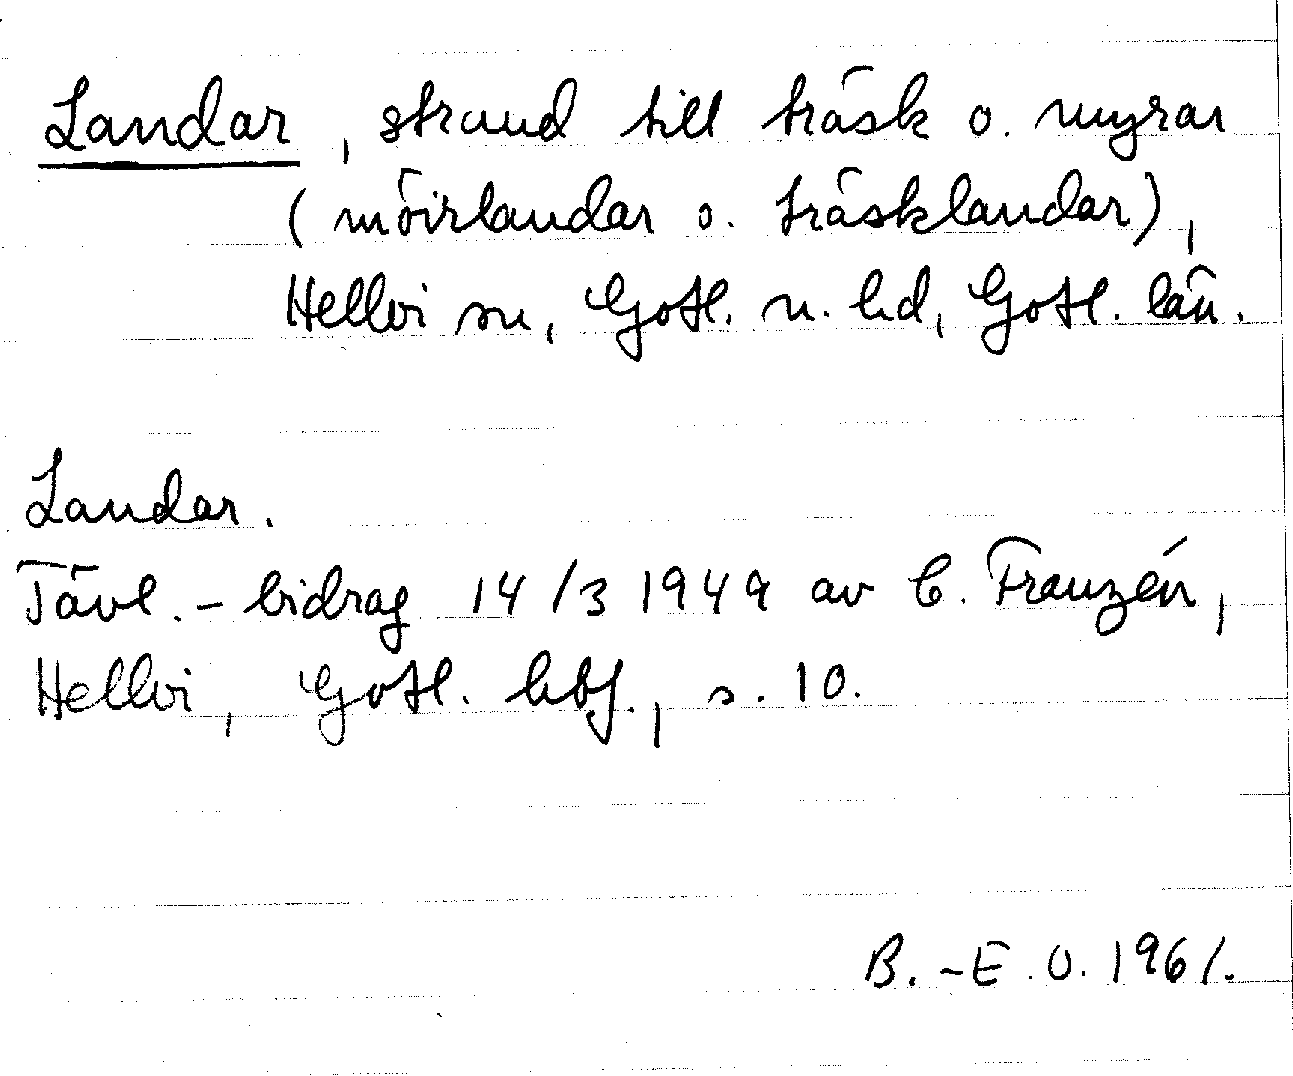 Landar, strand till träsk o. myrar
(möirlandar o. träsklandar),
Hellvi sn, Gotl. n. hd, Gotl. län.
Landar.
Tävl.-bidrag 14/3 1949 av C. Franzén,
Hellvi, Gotl. hbf., s. 10.
B.-E. O. 1961.